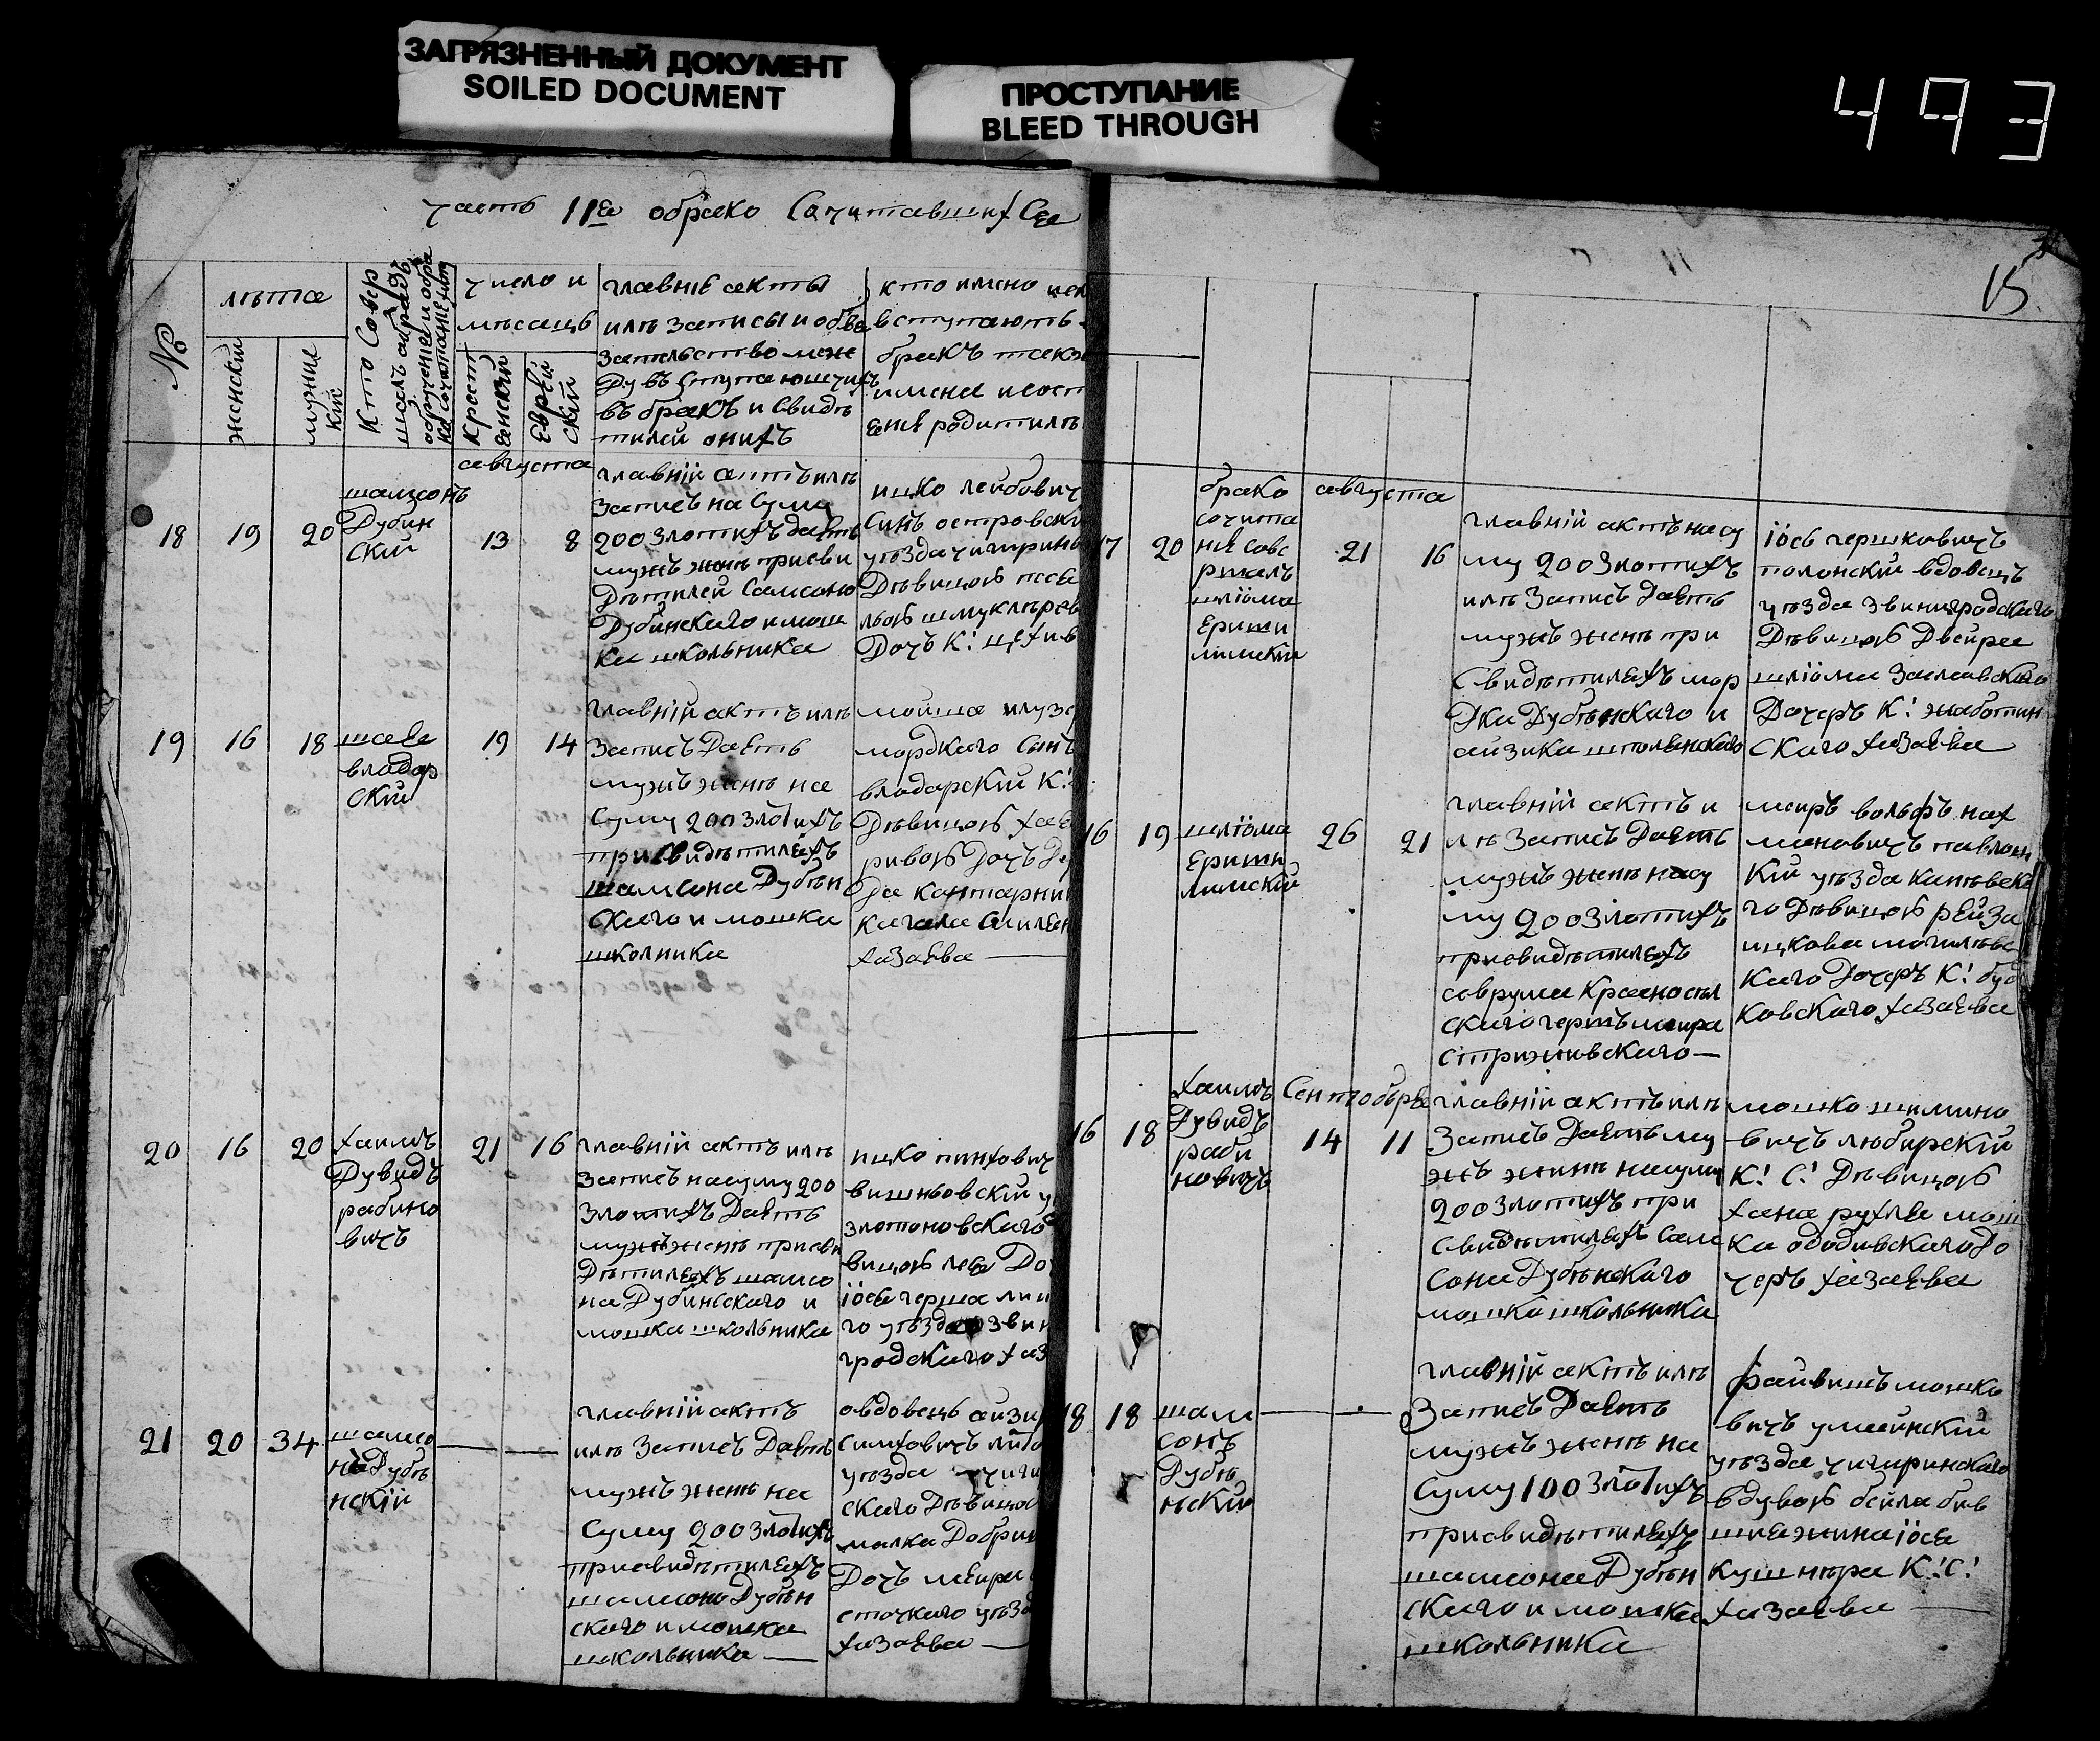 ЗАГРЯЗНЕННЫЙ ДОКУМЕНТ
SOILED DOCUMENT
ПРОСТУПАНИЕ
BLEED THROUGH
493
часть IIя обрако Сочитавшихся
15
№
лѣта
женскій
мужис
кій
Кто Совер
шалъ обрядъ
обрученіе и бра
ко сочитаніе
число и
мѣсяцъ
Христ
іенскій
Еврей
скій
главніе акты
илѣ записы и обѣ
зательство меж
ду въ Ступающихъ
въ бракъ и Свидѣ
тилей онихъ
кто имено
вступають
бракъ
имена и
родитилѣ
августа
18 19 20
шамсонъ
Дубин
скій
13 8
главній актъ илѣ
записъ на Суму
200 злотихъ даетъ
мужъ женѣ присви
дѣтилей Самсона
Дубинскаго и мош
ка школьника
ицко лейбович
Синъ островскі
уѣзда чигиринс
Дѣвицою песе
Дочъ К!
19 16 18
шае
владар
скій
19 14
главній актъ илѣ
записъ даетъ
мужъ женѣ на
Суму 200 злотихъ
при Свидѣтилехъ
шамсона Дубѣн
скаго и мошка
школника
мойша
мордкаго Сынъ
владарскій К!
Дѣвицою
ривою Дочъ
хазаева
20 16 20
хаимъ
Дувидъ
рабино
вичъ
21 16
главній актъ илѣ
записъ насуму 200
злотихъ даетъ
мужъ женѣ присви
дѣтилехъ шамсо
на Дубинскаго и
мошка школьника
ицко пинхович
вишньовскій у
злотоновскаго
вицою леа До
іосе герша
го уѣзда звин
гродскаго хаз
21 20 34
шамсо
нъ Дубѣ
нскій
главній актъ
илѣ записъ даетъ
мужъ женѣ на
Суму 200 злотихъ
присвидѣтилехъ
шамсона Дубѣн
скаго и мошка
школьника
овдовецъ айзи
Симховичъ
уѣзда чиги
скаго Дѣвицою
малка Добри
Дочъ меира
уѣзд
хазаева
17 20
брако
сочита
ніе сове
ршалъ
шліома
Ериши
лимскій
августа
21 16
главній актъ насу
му 200 злотихъ
илѣ записъ даетъ
мужъ женѣ при
Свидѣтилехъ мор
дка Дубѣнскаго и
айзика шполенскаго
іось гершковичъ
полонскій вдовецъ
уѣзда звиниградскаго
Дѣвицою Двейра
шліома Заславскаго
Дочеръ К! жаботин
скаго хазаева
16 19
шліома
Ериши
лимскій
26 21
главній актъ и
лѣ записъ даетъ
мужъ женѣ насу
му 200 злотихъ
присвидѣтилехъ
аврума Красносел
скаго герш меира
стрижевскаго
меиръ вольфъ нах
мановичъ павлоц
кій уѣзда каневска
го Дѣвицою рейза
ицкова могилевс
каго Дочеръ К! буд
ковскаго хазаева
16 18
хаимъ
Дувидъ
раби
новичъ
Сентобыря
14 11
главній актъ илѣ
записъ даетъ му
жъ женѣ насуму
200 злотихъ при
Свидѣтилехъ Сам
сона Дубѣнскаго
мошка школьника
мошко шлимно
вичъ любирскій
К! С! Дѣвицою
хана рухля мош
ка ободивскаго До
черъ хазаева
18 18
шам
сонъ
Дубѣ
нскій
главній актъ илѣ
записъ даетъ
мужъ женѣ на
Суму 100 злотихъ
присвидѣтилехъ
шамсона Дубѣн
скаго и мошка
школьника
файвишъ мошко
вичъ уманскій
уѣзда чигиринскаго
вдувою бейла бив
шяе жина іосе
кушнера К! С!
хазаева